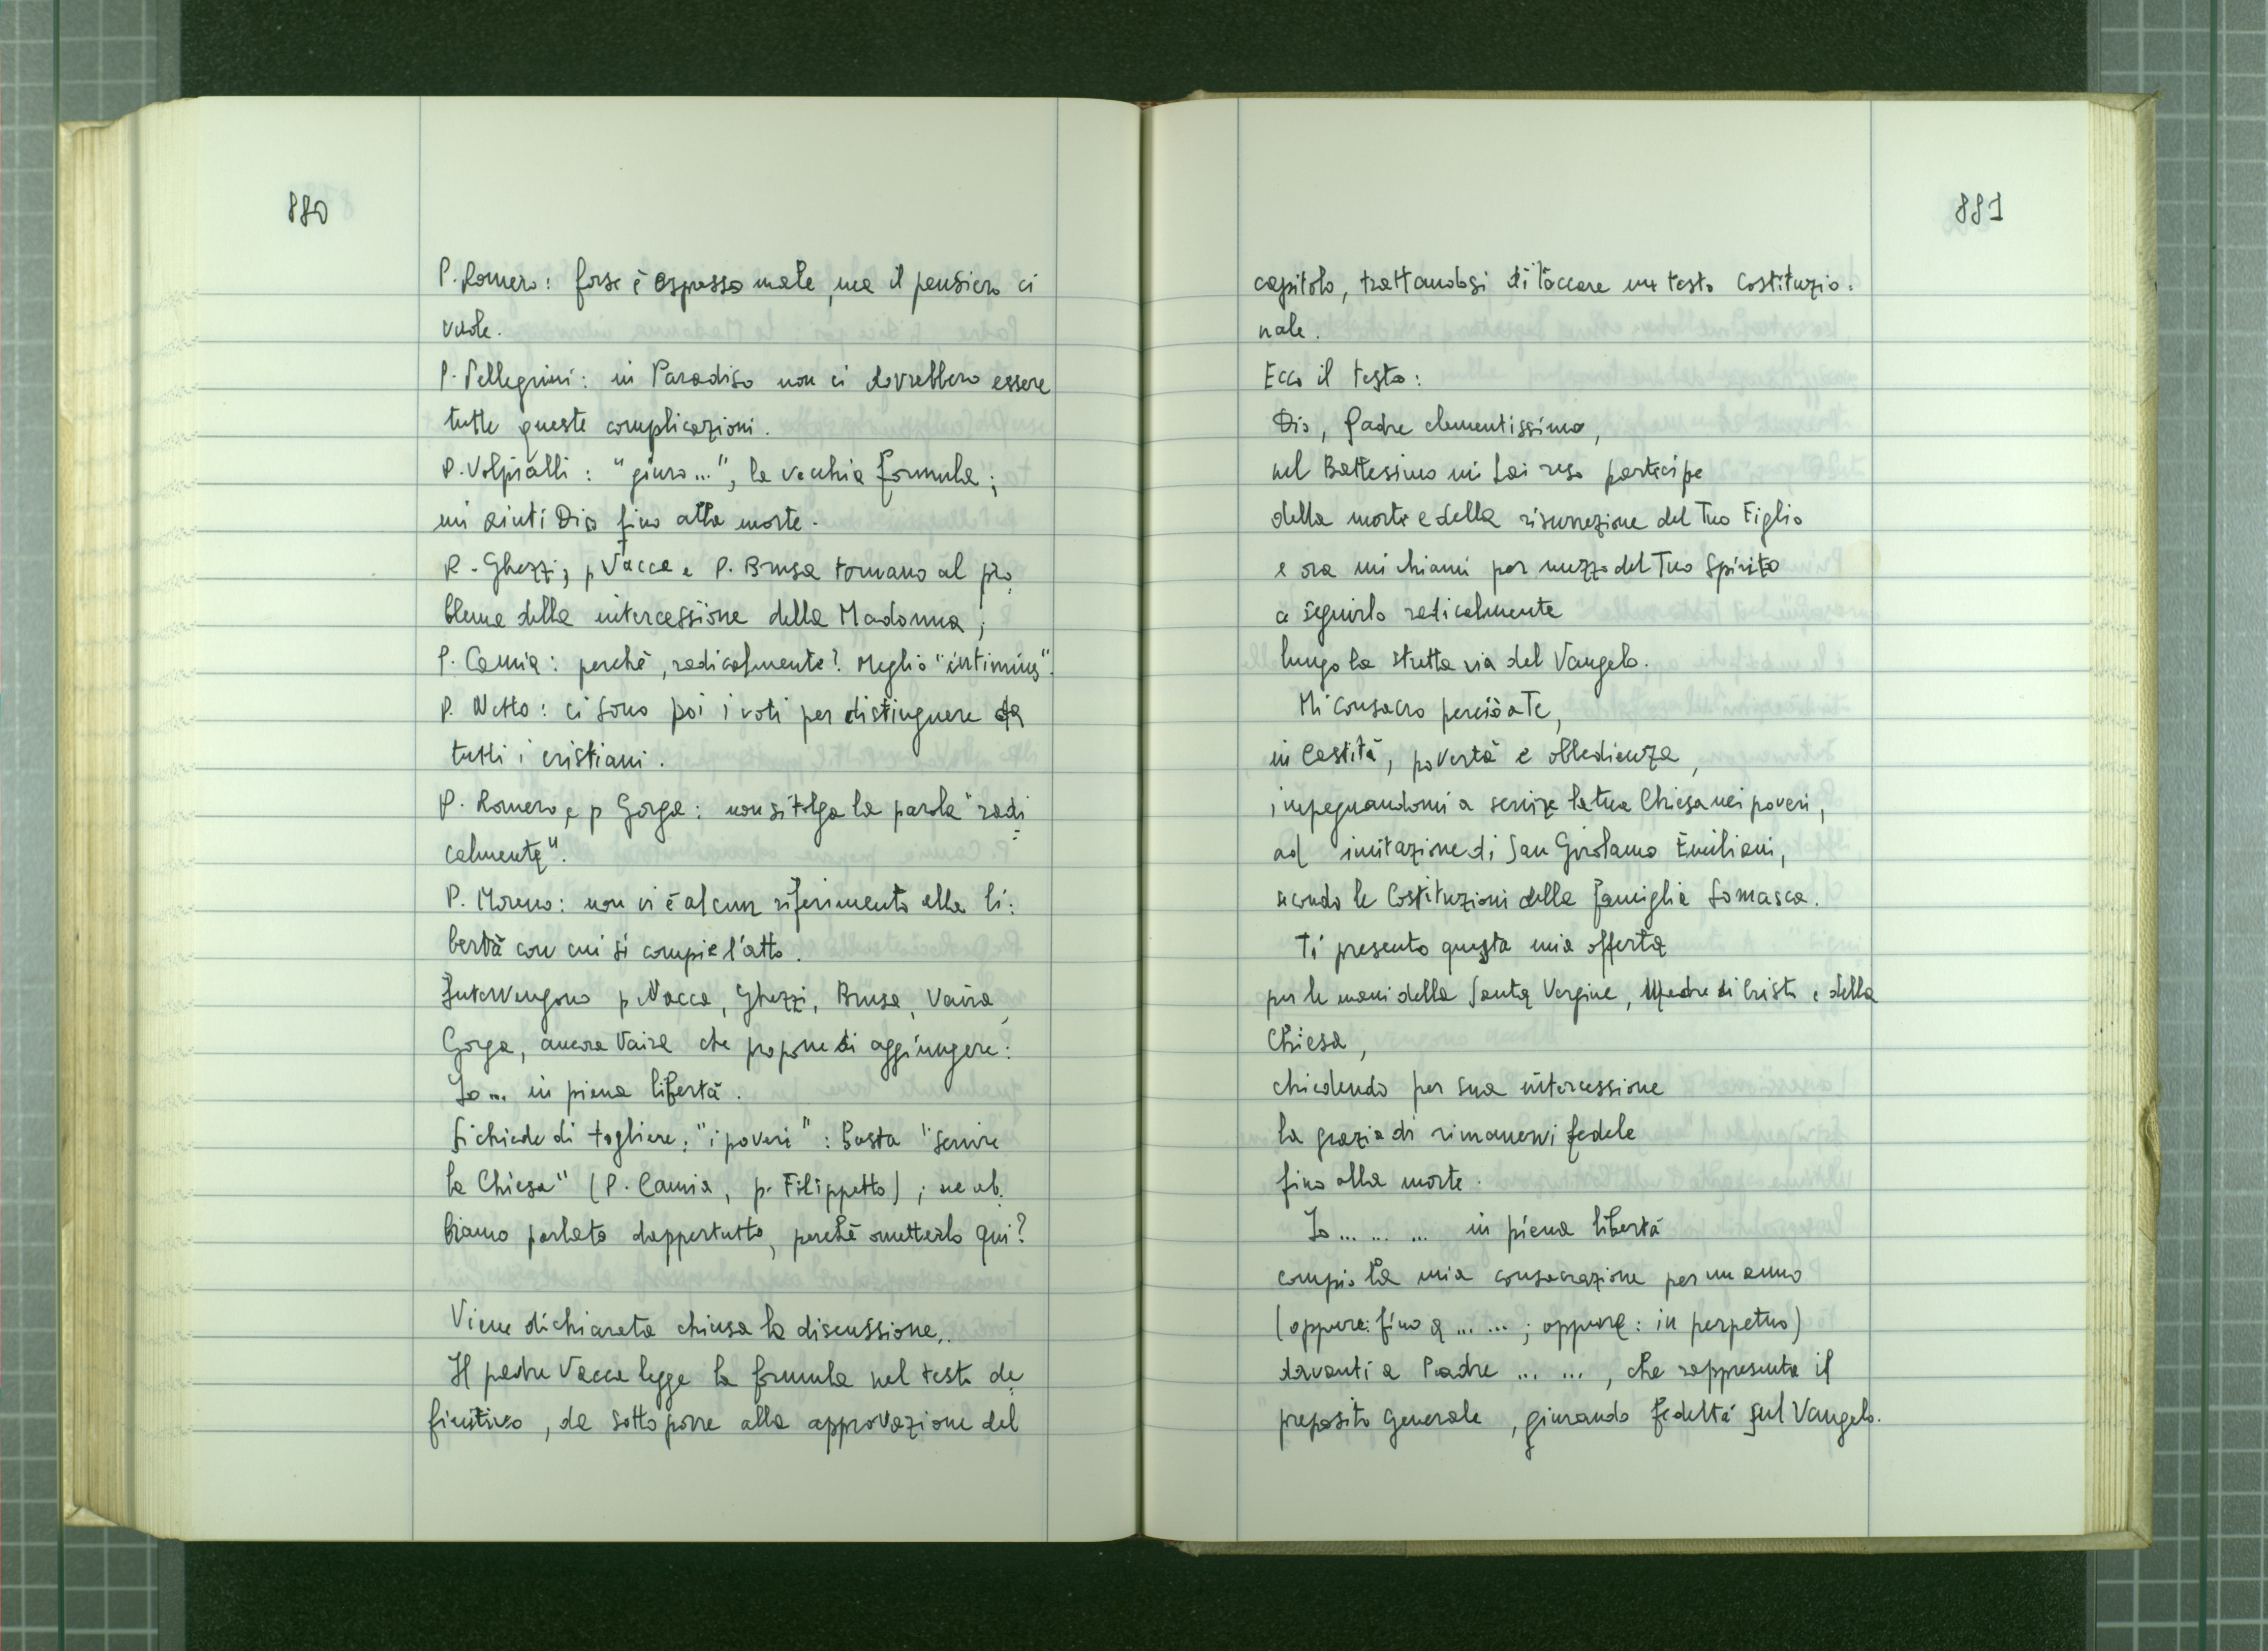 880
P. Romero: forse è espresso male, ma il pensiero ci
vuole.
P. Pellegrini: in Paradiso non ci dovrebbero essere
tutte queste complicazioni.
P. Volpialli: "giuro...", la vecchia formula;
mi aiuti Dio fino alla morte.
P. Ghezzi, p Vacca e P. Brusa tornano al pro
blema della intercessione della Madonna;
P. Camia: perché, radicalmente? Meglio "intimius".
P. Netto: ci sono poi i voti per distinguere da
tutti i cristiani.
P. Romero, e p Gorga: non si tolga la parola "radi
calmente".
P. Moreno: non vi è alcun riferimento alla li:
bertà con cui si compie l'atto.
Intervengono p. Vacca, Ghezzi, Brusa, Vaira,
Gorga, ancora Vaira che propone di aggiungere:
Io ... in piena libertà.
Si chiede di togliere: "i poveri": basta "servire
la Chiesa" (P. Camia, p. Filippetto); ne ab.
biamo parlato dappertutto, perché ometterlo qui?
Viene dichiarata chiusa la discussione.
Il padre Vacca legge la formula nel testo de
finitivo, da sottoporre alla approvazione del
881
capitolo, trattandosi di toccare un testo Costituzio:
nale.
Ecco il testo:
Dio, Padre clementissimo,
nel Battesimo mi hai reso partecipe
della morte e della risurrezione del Tuo Figlio
e ora mi chiami per mezzo del Tuo Spirito
a seguirlo radicalmente
lungo la stretta via del Vangelo.
Mi consacro perciò a Te,
in Castità, povertà e obbedienza,
impegnandomi a servire la tua Chiesa nei poveri,
ad imitazione di San Girolamo Emiliani,
secondo le Costituzioni della famiglia Somasca.
Ti presento questa mia offerta
per le mani della Santa Vergine, Madre di Cristo e della
Chiesa,
chiedendo per sua intercessione
la grazia di rimanervi fedele
fino alla morte.
Io ... ... ... in piena libertà
compio la mia consacrazione per un anno
(oppure: fino a ... ...; oppure: in perpetuo)
davanti a Padre ... ..., che rappresenta il
preposito generale, giurando fedeltà sul Vangelo.